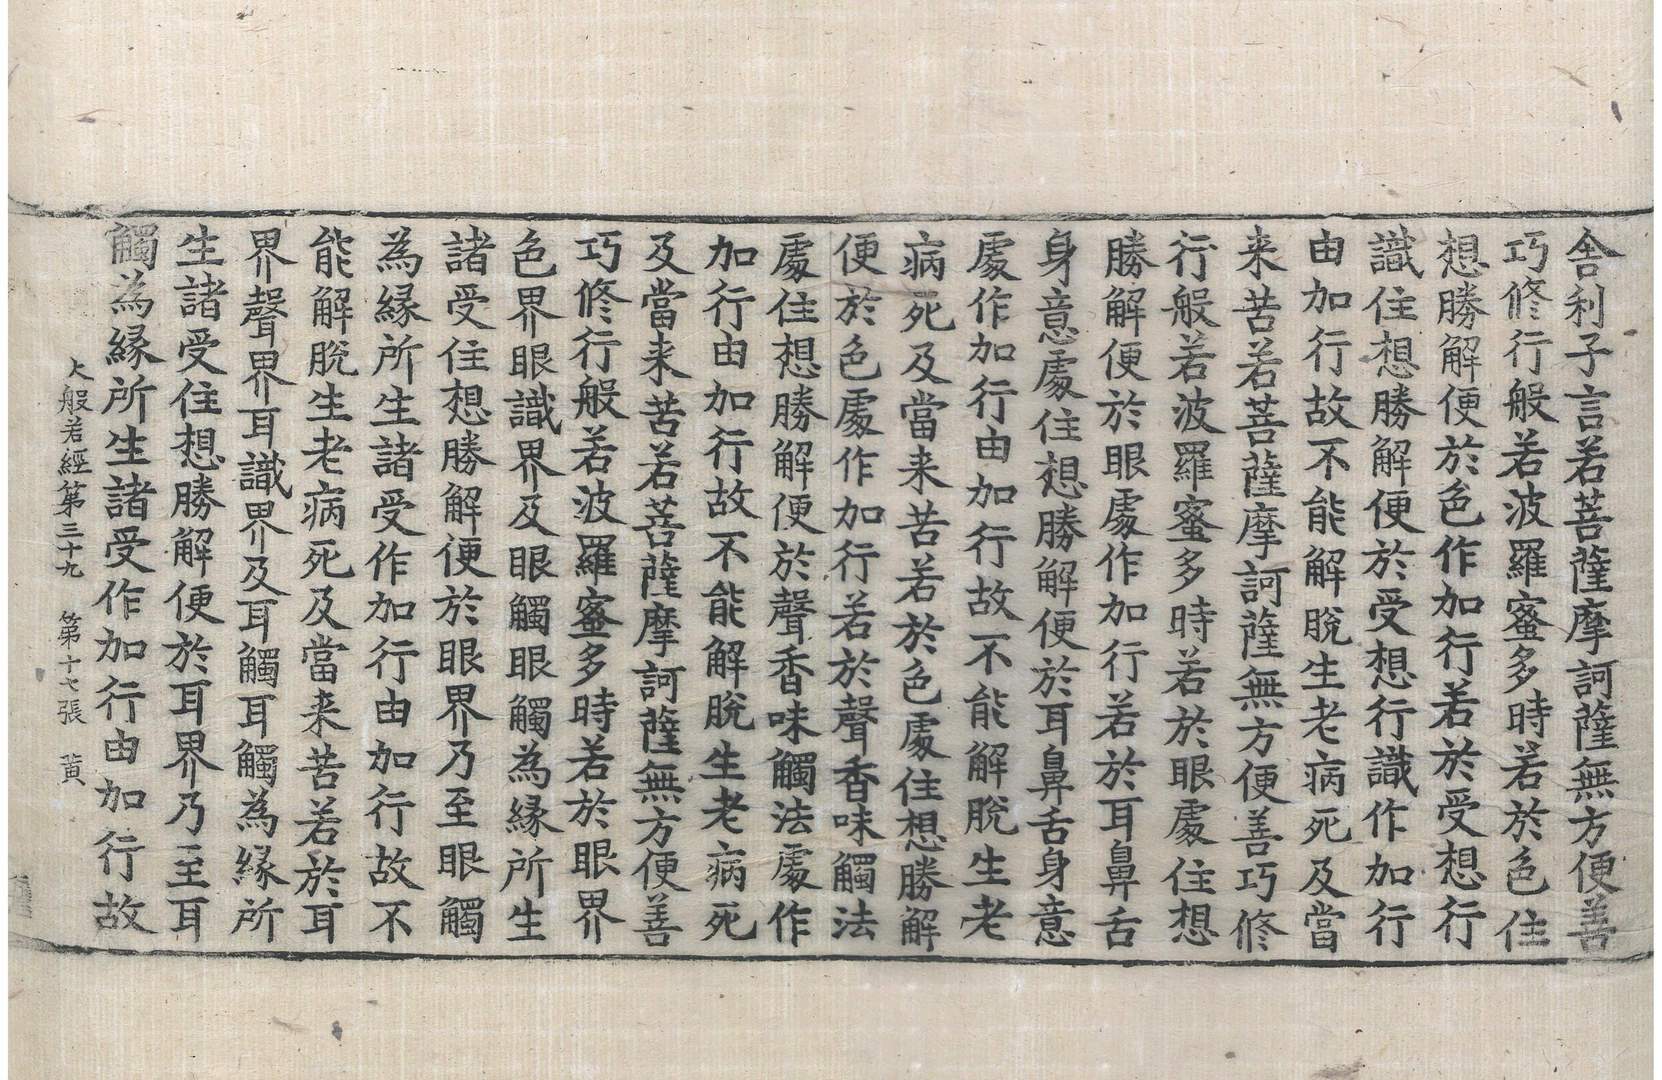 舎利子言若菩薩摩訶薩無方便善
巧修行般若波羅蜜多時若於色住
想勝解便於色作加行若於受想行
識住想勝解便於受想行識作加行
由加行故不能解脫生老病死及當
来苦若菩薩摩訶薩無方便善巧修
行般若波羅蜜多時若於眼處住想
勝解便於眼處作加行若於耳鼻舌
身意處住想勝解便於耳鼻舌身意
處作加行由加行故不能解脫生老
病死及當来苦若於色處住想勝解
便於色處作加行若於聲香味觸法
處住想勝解便於聲香味觸法處作
加行由加行故不能解脫生老病死
及當来苦若菩薩摩訶薩無方便善
巧修行般若波羅蜜多時若於眼界
色界眼識界及眼觸眼觸為緣所生
諸受住想勝解便於眼界乃至眼觸
為緣所生諸受作加行由加行故不
能解脫生老病死及當来苦若於耳
界聲界耳識界及耳觸耳觸為緣所
生諸受住想勝解便於耳界乃至耳
觸為緣所生諸受作加行由加行故
大般若經第三十九　第十七張　黄